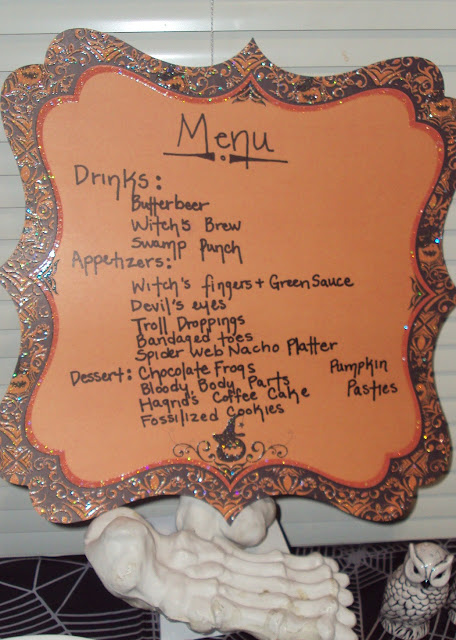 Menu
Drinks:
Butterbeer
Witch's Brew
Swamp Punch
Appetizers:
Witch's fingers + Green Sauce
Devil's eyes
Troll Droppings
Bandaged toes
Spider Web Nacho Platter
Dessert: Chocolate Frogs
Bloody Body Parts
Hagrid's Coffee Cake
Fossilized Cookies
Pumpkin
Pasties